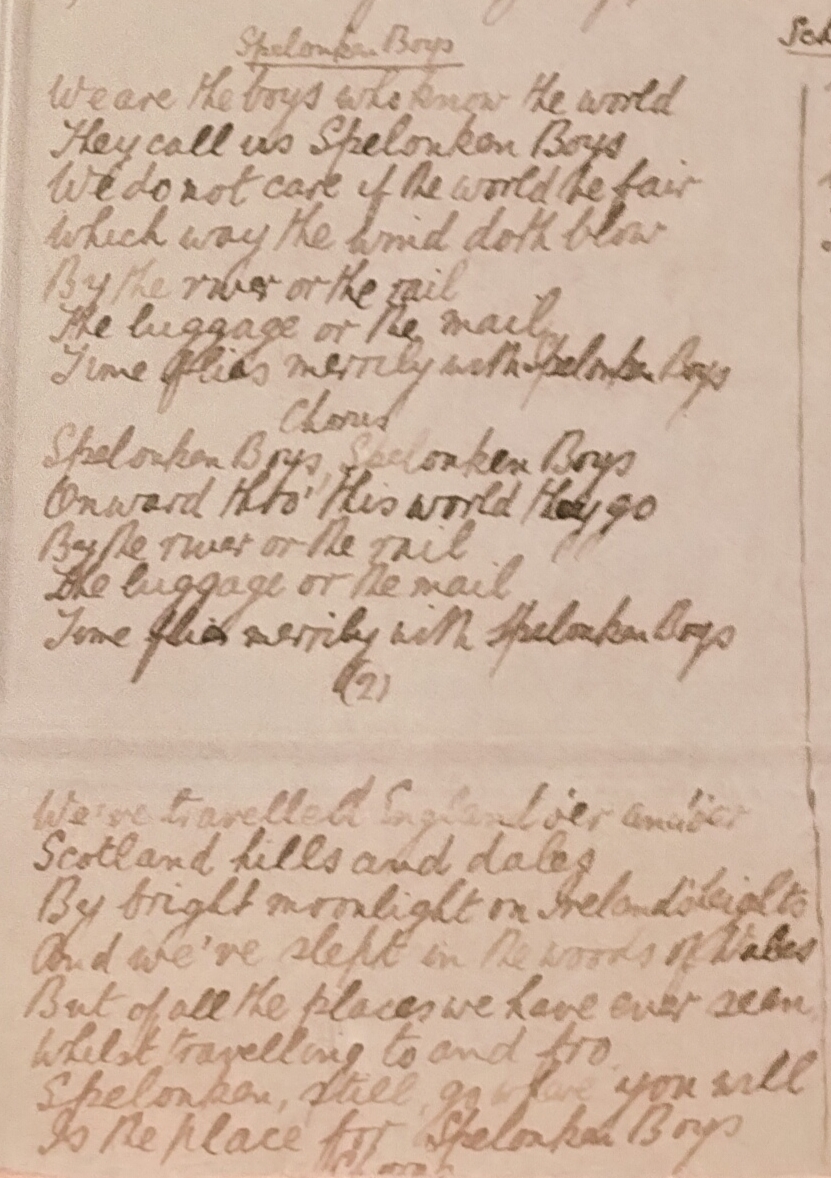 Spelonken Boys
Sch
We are the boys who know the world
They call us Spelonken Boys
We do not care if the world be fair
which way the wind doth blow
By the river or the rail
The luggage or the mail
Time flies merrily with Spelonken Boys
Chorus
Spelonken Boys, Spelonken Boys
Onward thro' this world they go
By the river or the rail
The luggage or the mail
Time flies merrily with Spelonken Boys
(2)
We've travelled England o'er and o'er
Scotland hills and dales
By bright moonlight on Ireland's heights
And we've slept in the woods of Wales
But of all the places we have ever seen
Whilst travelling to and fro
Spelonken, still, go where you will
Is the place for Spelonken Boys
Chorus